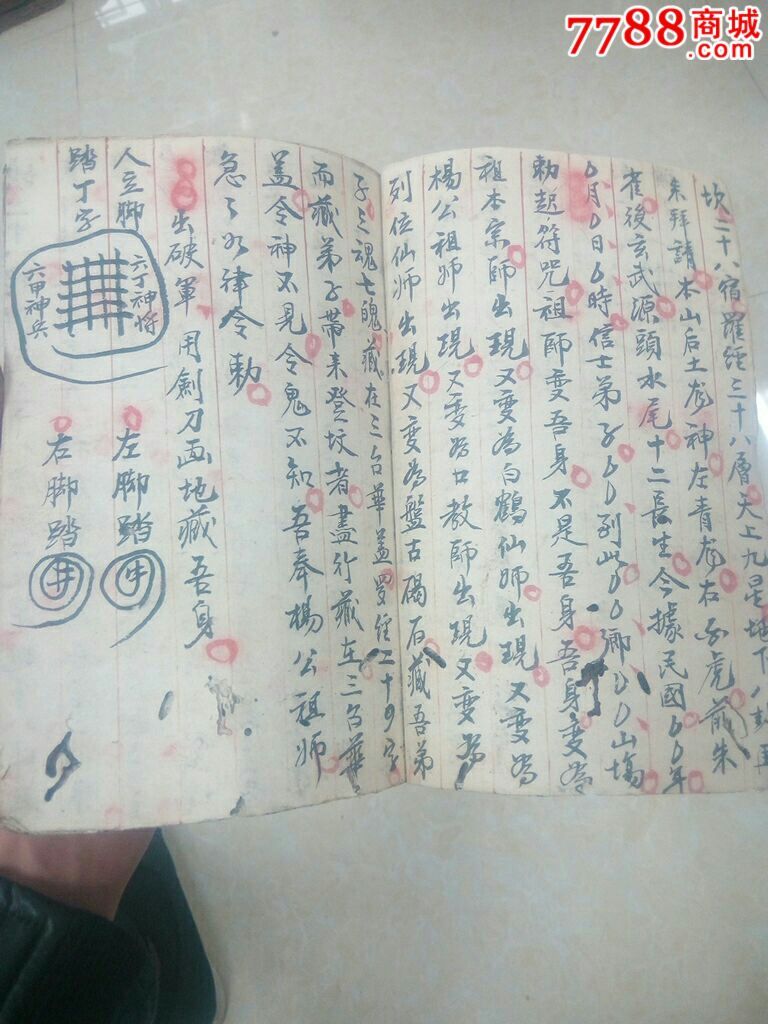 7788商城
.com
坎二十八宿羅經三十八層天上九星地下八卦
来拜請本山后土龙神左青龙右白虎前朱
雀後玄武源頭水尾十二長生今據民國00年
0月0日0時信士弟子00列此00鄉00山塲
勅起符咒祖師变吾身不是吾身吾身变為
祖本宗師出現又变為白鶴仙師出現又变為
楊公祖師出現又变為口教師出現又变為
列位仙師出現又变為盤古碣石藏吾弟
子三魂七魄藏在三台華盖罗經二十四字
而藏弟子帶来登坟者盡行藏在三台華
盖令神不見令鬼不知吾奉楊公祖师
急々如律令勅
出破軍 用劍刀画地藏吾身
人立脚
踏丁字
六丁神将
六甲神兵
左脚踏
牛
右脚踏
井